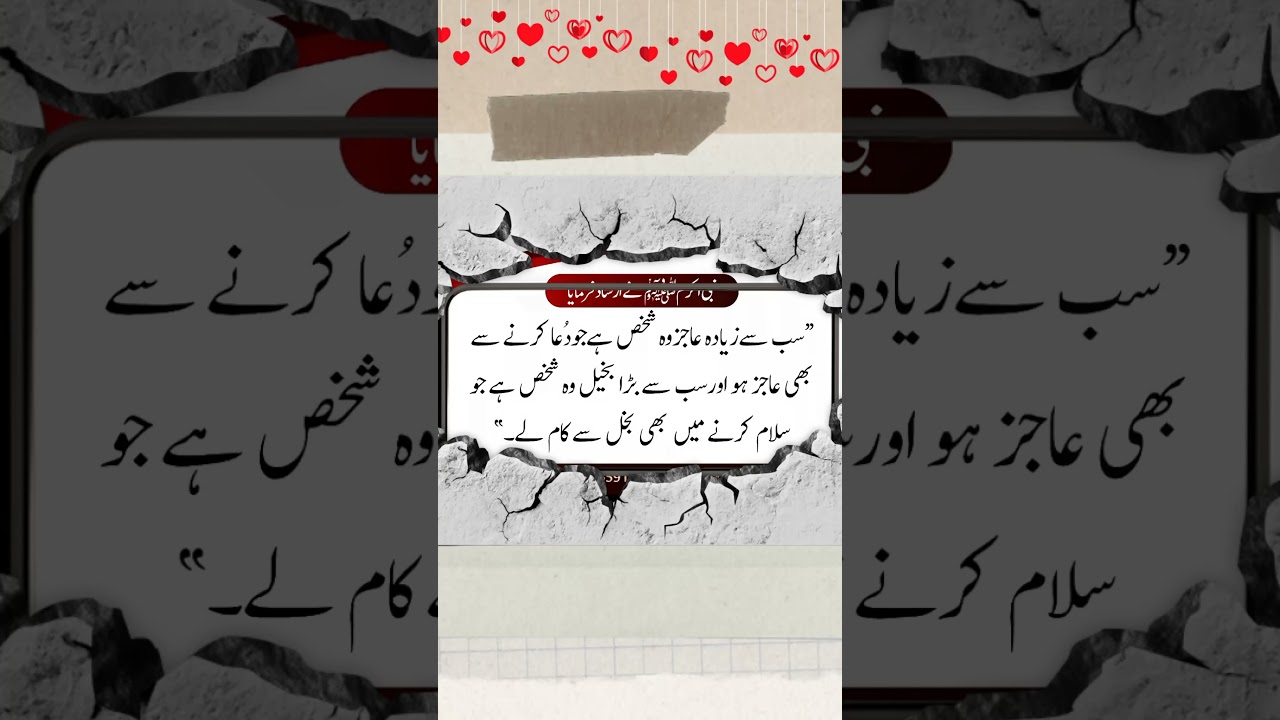 نبی اکرم ﷺ نے ارشاد فرمایا
”سب سے زیادہ عاجز وہ شخص ہے جو دُعا کرنے سے
بھی عاجز ہو اور سب سے بڑا بخیل وہ شخص ہے جو
سلام کرنے میں بھی بخل سے کام لے۔“
591